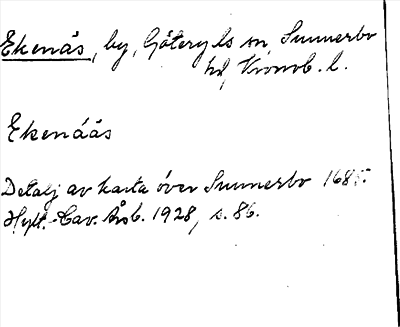 Ekenås, by, Göteryds sn, Sunnerbo
hd, Kronob. l.
Ekenåås
Detalj av karta över Sunnerbo 1685.
Hylt.-Cav. Årsb. 1928, s. 86.